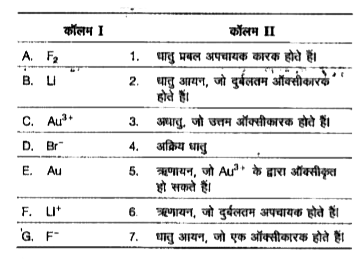 कॉलम I कॉलम II
A. F₂ 1. धातु प्रबल अपचायक कारक होते हैं।
B. Li 2. धातु आयन, जो दुर्बलतम ऑक्सीकारक
होते हैं।
C. Au³⁺ 3. अधातु, जो उत्तम ऑक्सीकारक होते हैं।
D. Br⁻ 4. अक्रिय धातु
E. Au 5. ऋणायन, जो Au³⁺ के द्वारा ऑक्सीकृत
हो सकते हैं।
F. LI⁺ 6. ऋणायन, जो दुर्बलतम अपचायक होते हैं।
G. F⁻ 7. धातु आयन, जो एक ऑक्सीकारक होते हैं।